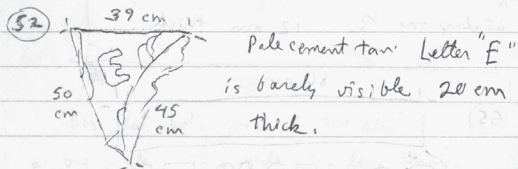 52
39 cm
E
50 cm
45 cm
Pale cement tan. Letter "E"
is barely visible 20 cm
thick.